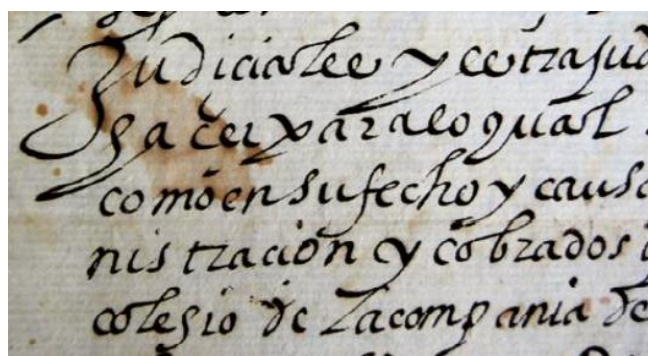 Judiciales y extrajud
hacer para lo qual
como en su fecho y causa
nistracion y cobrados
colegio de la compania de